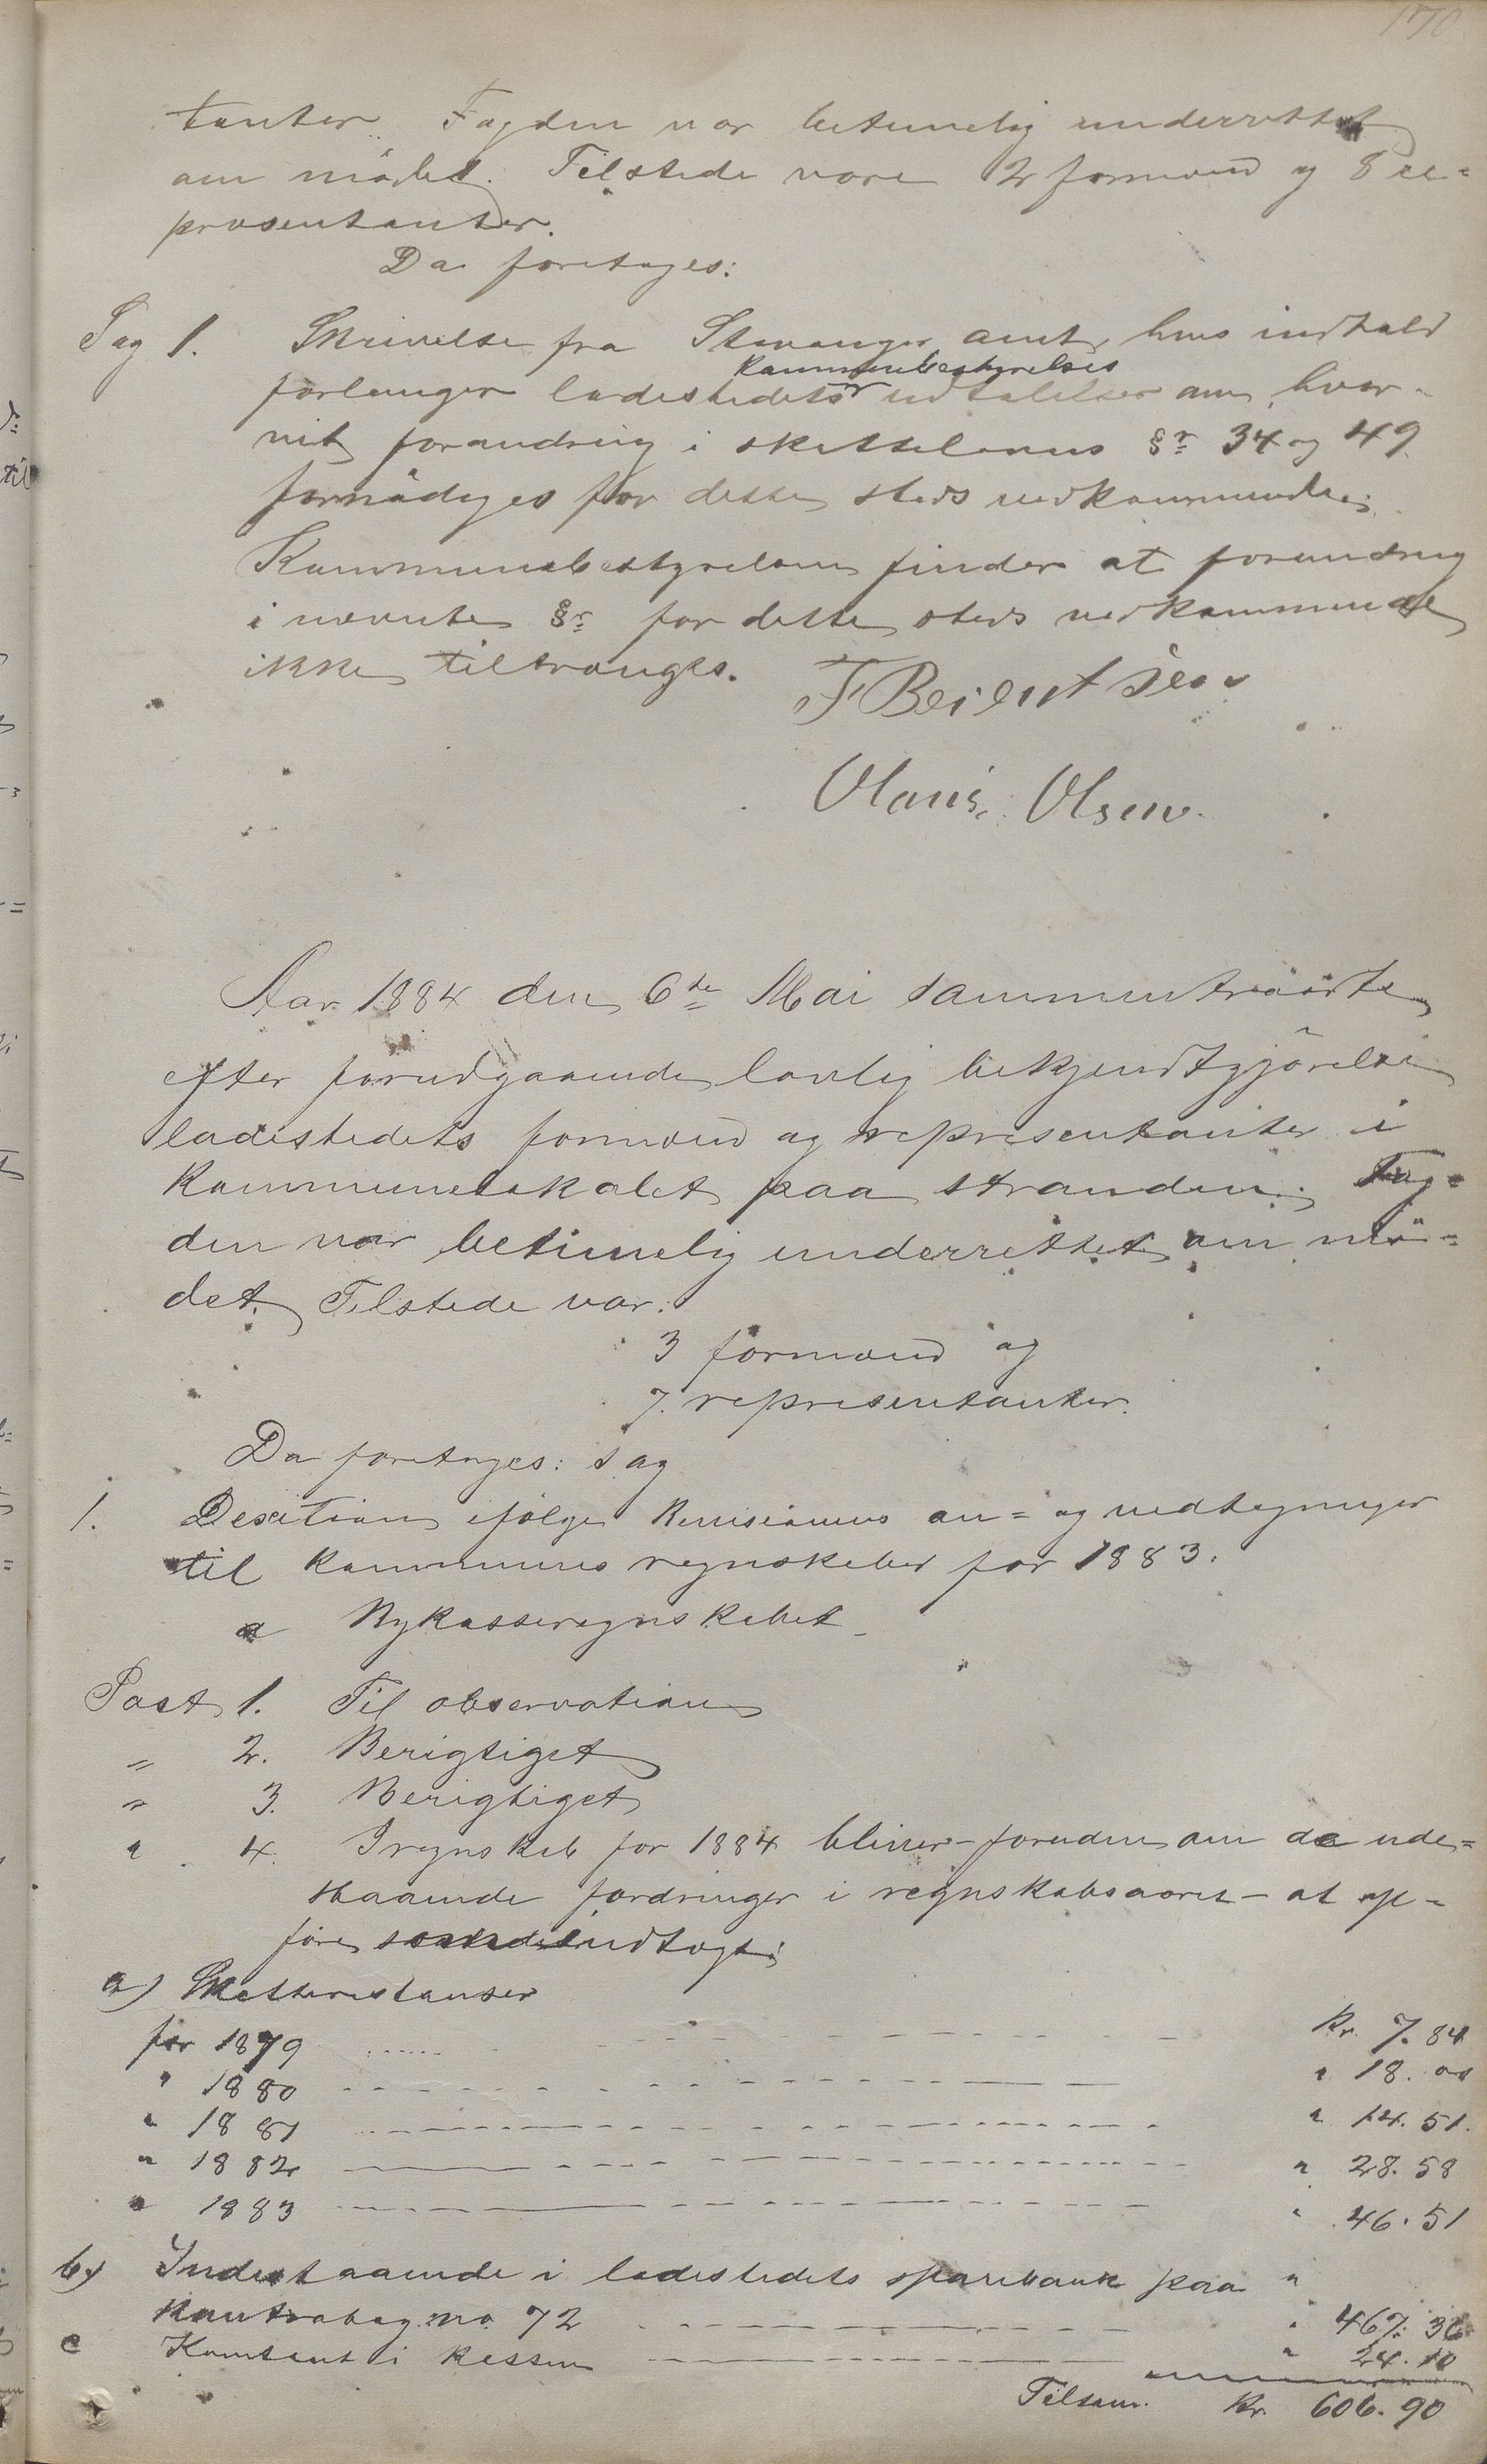 170
tanter. Fogden var betimelig underrettet
om mödet. Tilstede vare 2 formænd og 8 re=
præsentanter.
Da foretoges:
Sag 1. Skrivelse fra Stavanger amt, hvis indhold
kommunebestyrelses
forlanger ladestedets udtalelser om, hvor-
vit forandring i skattelovens §r 34 og 49
fornødiges for dette steds vedkommende.
Kommunebestyrelsen finder at forandring
i nævnte §r for dette steds vedkommende
ikke tiltrænges.
T Berentsen
Olaus Olsen.
Aar 1884 den 6te Mai sammentraadte
efter forudgaaende lovlig bekjendtgjörelse
ladestedets formænd og representanter i
Kommunelokalet paa stranden. Fog=
den var betimelig underrettet om mö=
det. Tilstede var:
3 formænd og
7 representanter.
Da foretoges: sag
1. Desition ifølge Revisionens an= og vedtegninger
til kommunens regnskaber for 1883.
a Bykasseregnskabet
Post 1. Til observation
" 2. Berigtiget
" 3. Berigtiget
" 4. I regnskab for 1884 bliver - foruden om de ude=
staaende fordringer i regnskabsaaret - at op=
føre indtægt:
a) Skatterestanser
for 1879 Kr. 7. 84
" 1880 " 18. 00
" 1881 " 14. 51.
" 1882 " 28. 58
" 1883 " 46. 51
b) Indestaaende i ladestedets sparebank paa "
Kontrabog no. 72 " 467. 36
c Kontant i kassen " 24. 10
Tilsam. Kr. 606. 90